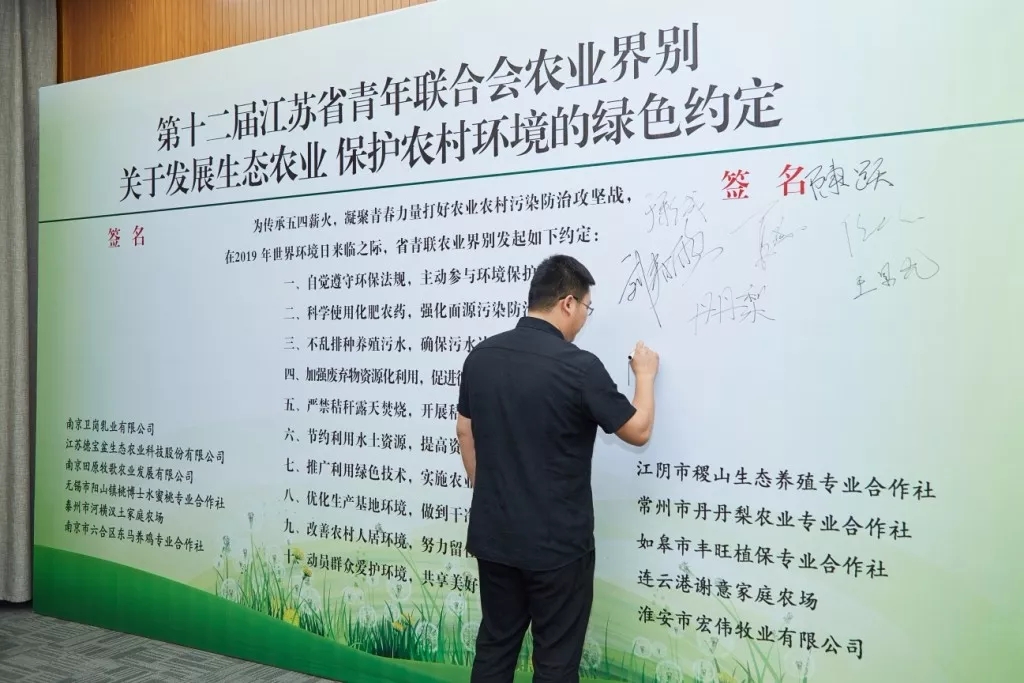 第十二届江苏省青年联合会农业界别
关于发展生态农业 保护农村环境的绿色约定
签 名
签 名
为传承五四薪火，凝聚青春力量打好农业农村污染防治攻坚战，
在2019 年世界环境日来临之际，省青联农业界别发起如下约定：
一、自觉遵守环保法规，主动参与环境保护
二、科学使用化肥农药，强化面源污染防治
三、不乱排种养殖污水，确保污水
四、加强废弃物资源化利用，促进
五、严禁秸秆露天焚烧，开展
六、节约利用水土资源，提高资
七、推广利用绿色技术，实施农业
八、优化生产基地环境，做到干净
九、改善农村人居环境，努力留
十、动员群众爱护环境，共享美好
南京卫岗乳业有限公司
江苏德宝盆生态农业科技股份有限公司
南京田原牧歌农业发展有限公司
无锡市阳山镇桃博士水蜜桃专业合作社
泰州市河横汉土家庭农场
南京市六合区东马养鸡专业合作社
丹丹梨
江阴市稷山生态养殖专业合作社
常州市丹丹梨农业专业合作社
如皋市丰旺植保专业合作社
连云港谢意家庭农场
淮安市宏伟牧业有限公司